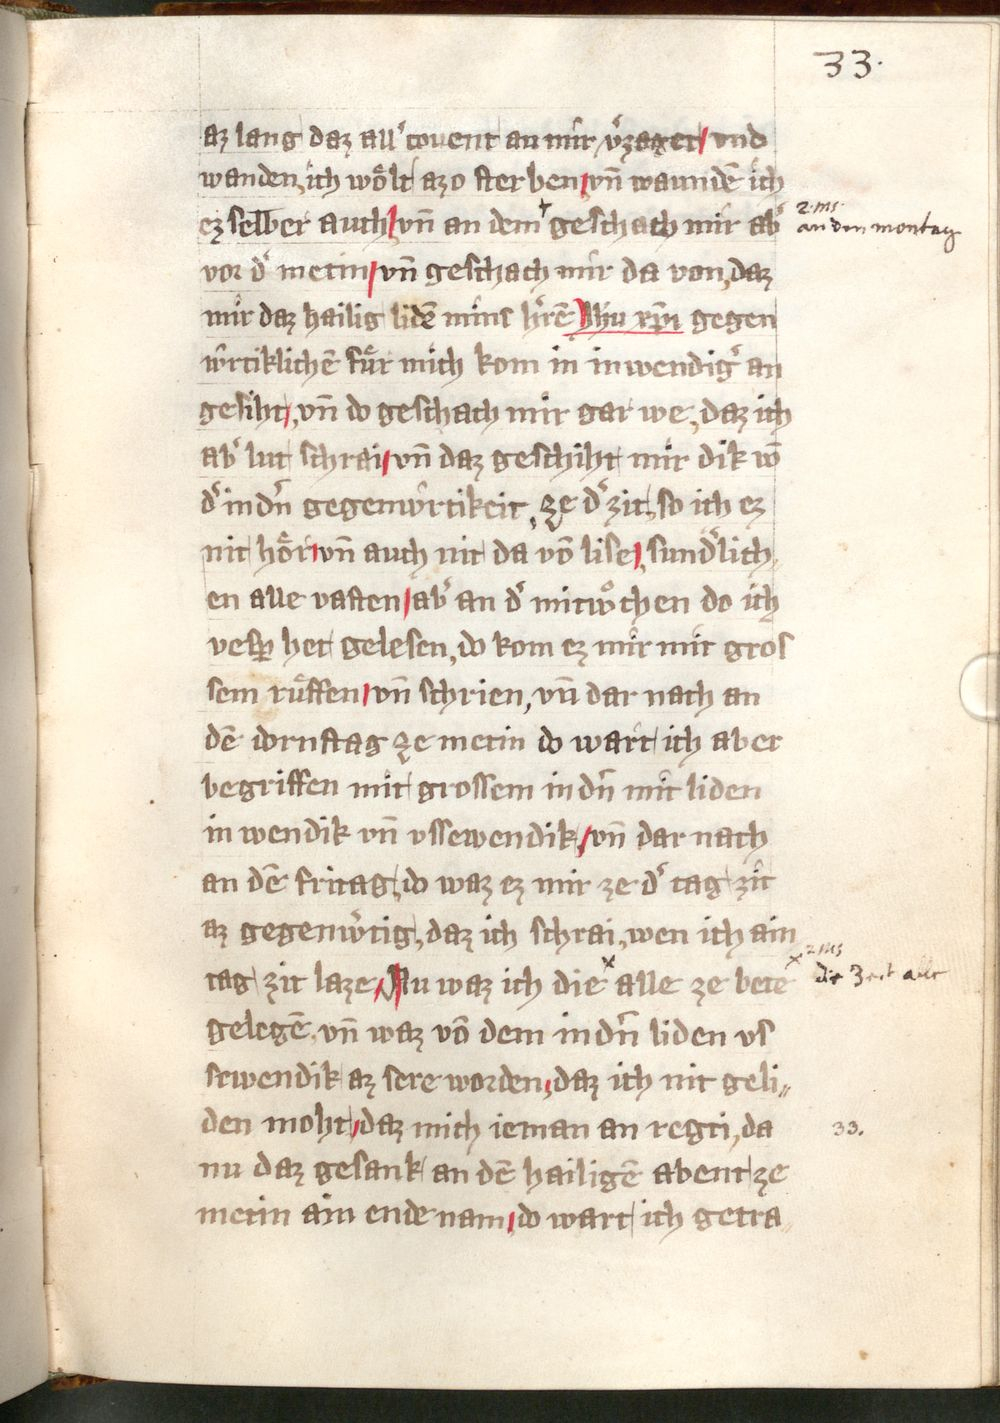 33.
az lang daz all' couent an mir v'zaget / vnd
wanden, ich wölt azo sterben / vn̄ waundē ich
ez selber auch / vn̄ an dem + geschach mir ab'
2. ms.
an dem montag
vor d' metin / vn̄ geschach mir da von, daz
mir daz hailig lidē mins h'rē Jhu xp̄i gegen
wrtiklichē für mich kom in inwendig' an
gesiht / , vn̄ do geschach mir gar we, daz ich
ab' lut schrai / vn̄ daz geschiht mir dik vō
d' indn̄ gegenwrtikeit, ze d' zit, so ich ez
nit hör / vn̄ auch nit da vō lise / , sund'lich
en alle vasten / ab' an d' mitwochen do ich
vesp het gelesen, do kom ez mir mit gros
sem rüffen / vn̄ schrien, vn̄ dar nach an
dē dornstag ze metin do wart ich aber
begriffen mit grossem indn̄ mit liden
in wendik vn̄ vssewendik / , vn̄ dar nach
an dē fritag, do waz ez mir ze d' tag zit
az gegenw'tig, daz ich schrai, wen ich ain
tag zit laze / Nu waz ich die x alle ze bete
x 2 ms
die Zeit alle
gelegē, vn̄ waz vō dem indn̄ liden vs
sewendik az sere worden, daz ich nit geli„
den moht, daz mich ieman an regti, da
33.
nu daz gesank an dē hailigē abent ze
metin ain ende nam, do wart ich getra„